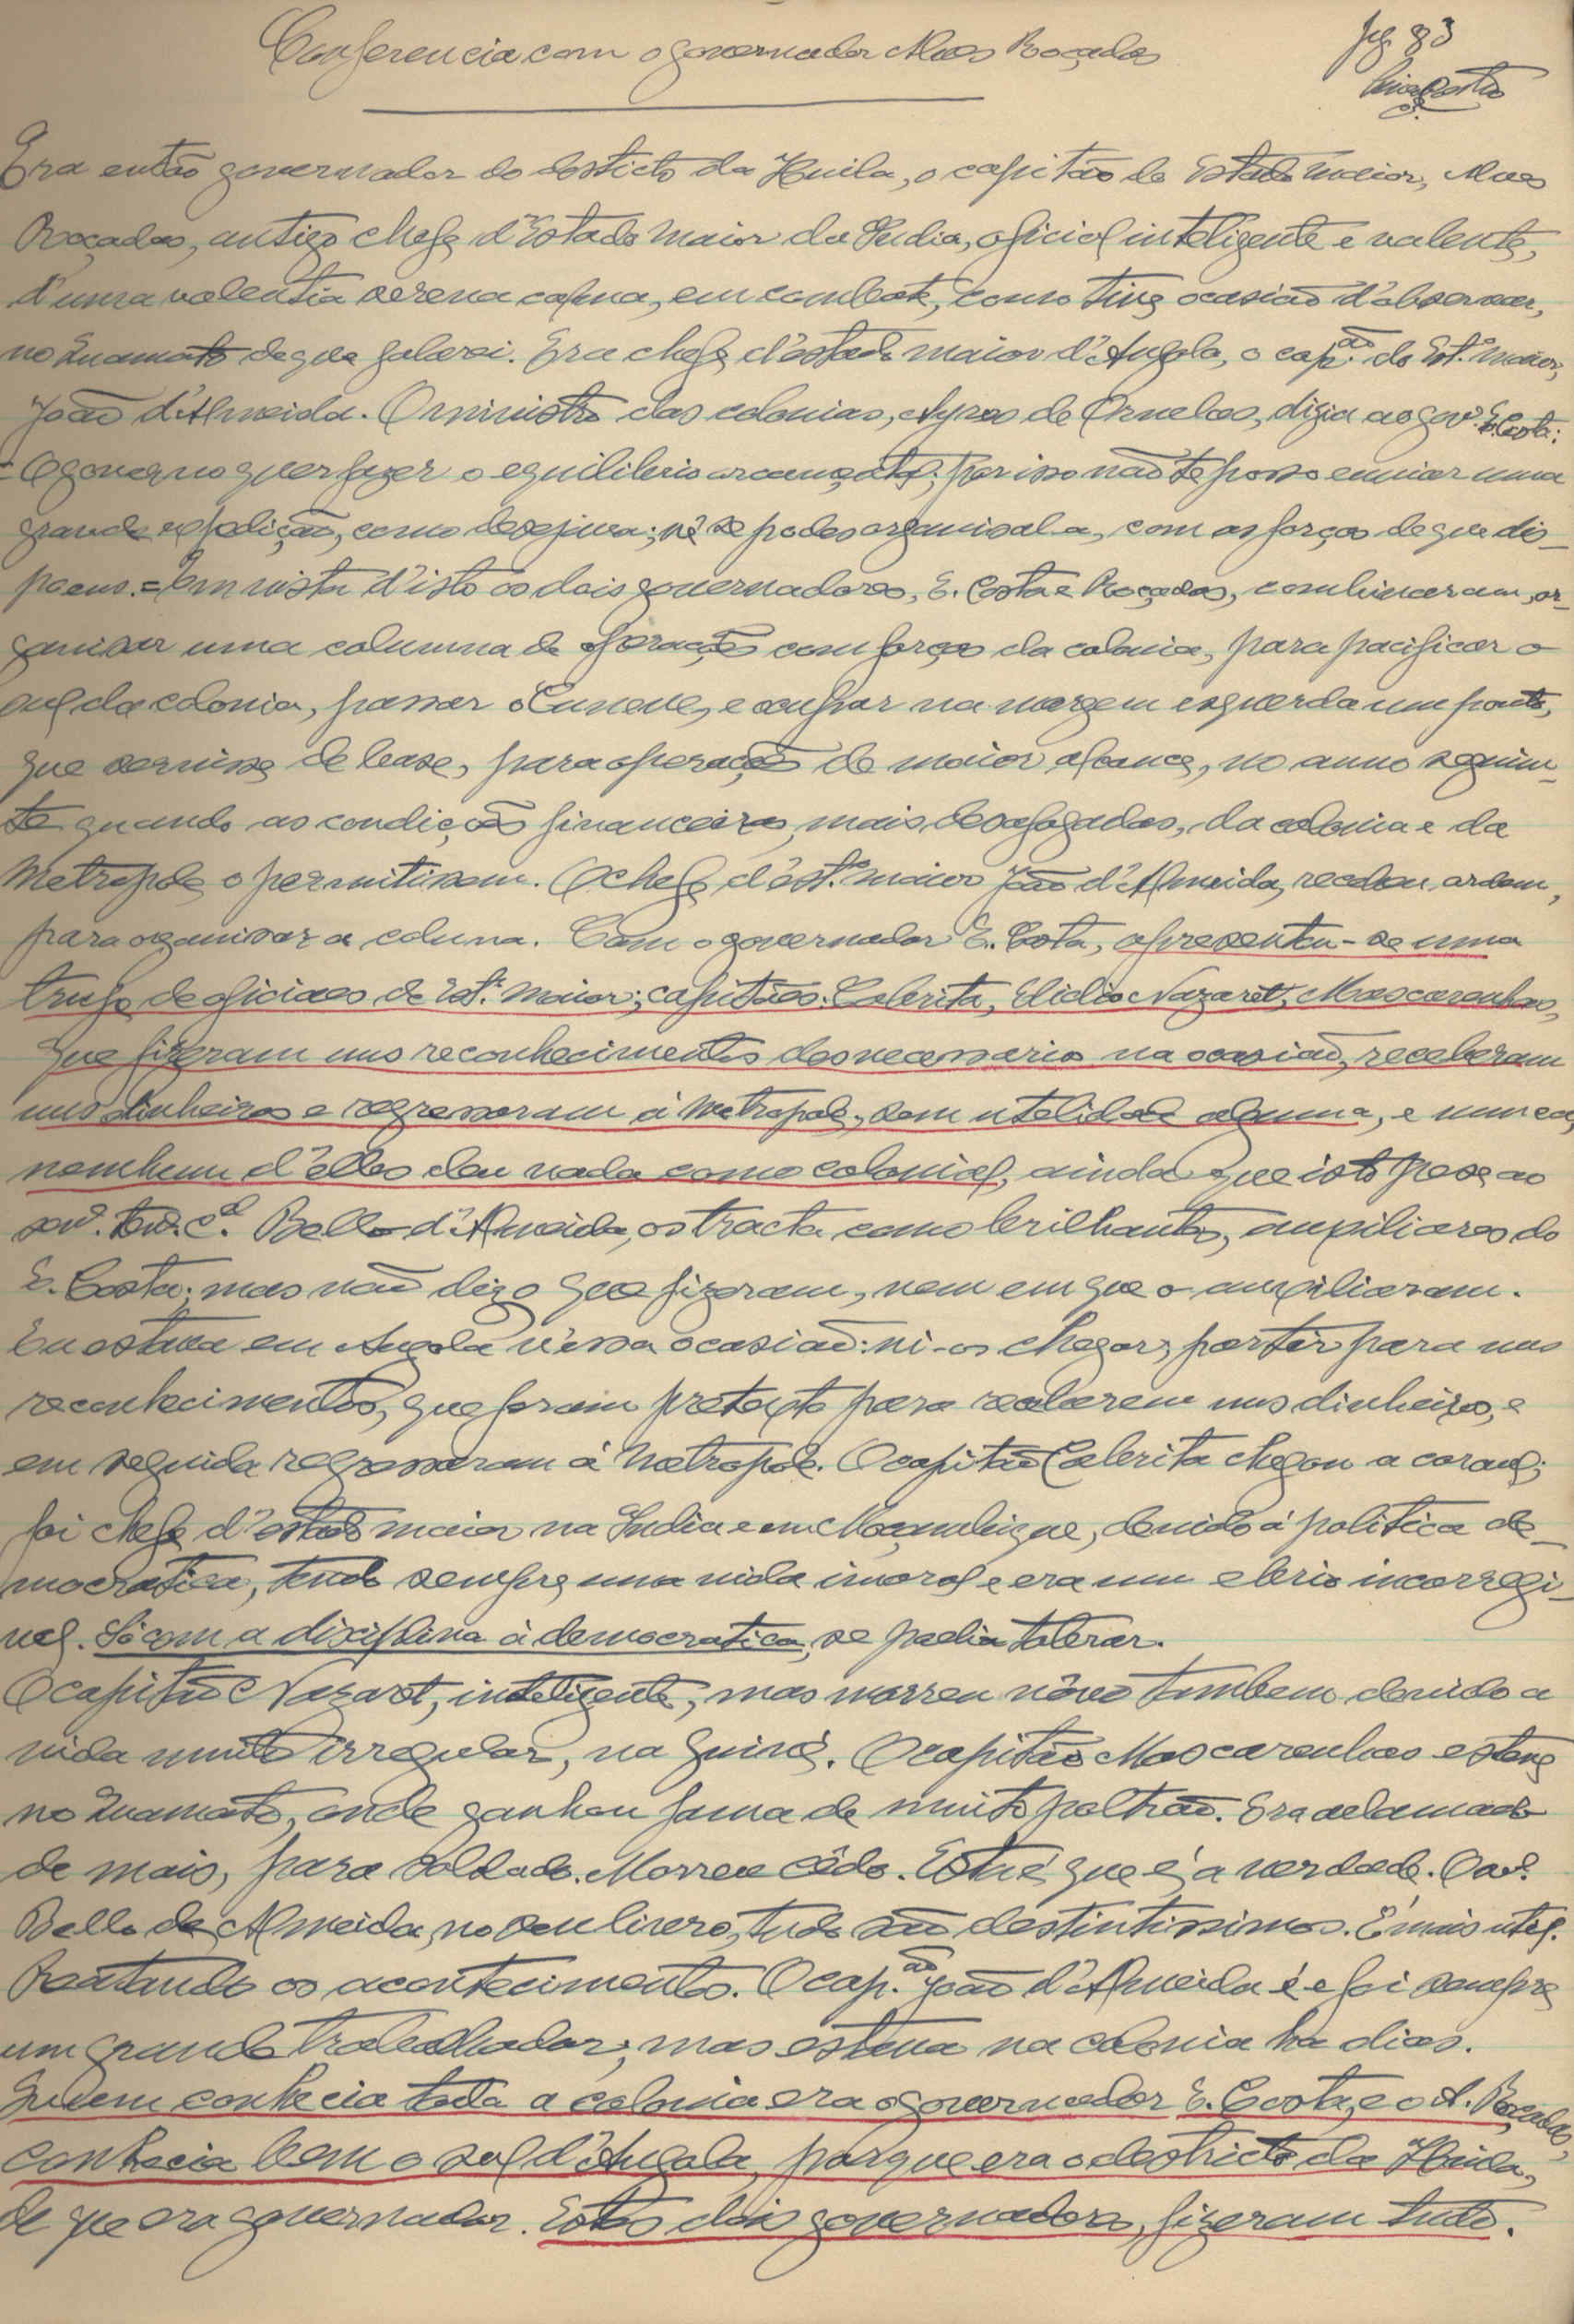 Conferencia com o governador Alves Roçadas
fg 83
Era então governador do destricto da Huila, o capitão de Estado maior, Alves
Roçadas, antigo chefe d'Estado Maior da India, oficial inteligente e valente,
d'uma valentia serena calma, em combate, como tive ocasião d'observar,
no Cuamato de que falarei. Era chefe d'estado maior d'Angola, o cap.ão do Est.º maior,
João d'Almeida. O ministro das colonias, Ayres de Ornelas, dizia ao gov.º E. Costa:
= O governo quer fazer o equilibrio orçamental; por isso não te posso enviar uma
grande expedição, como desejava; vê se podes organisal-a, com as forças de que dis-
poens. = Em vista d'isto os dois governadores, E. Costa e Roçadas, combinaram, or-
ganisar uma columna de operações com forças da colonia, para pacificar o
sul da colonia, passar o Cunene, e ocupar na margem esquerda um ponto,
que servisse de base, para operações de maior alcance, no anno seguin-
te quando as condições financeiras, mais desafogadas, da colonia e da
Metropole o permitissem. O chefe d'est.º maior João d'Almeida, recebeu ordem,
para organisar a coluna. Com o governador E. Costa, apresentou-se uma
trupe de oficiaes de Est.º maior; capitães: Cabrita, Elidio Nazaret, Mascarenhas,
que fizeram uns reconhecimentos desnecessarios na ocasião, receberam
uns dinheiros e regressaram á Metropole, sem utelidade alguma, e nunca,
nenhum d'elles deu nada como colonial, ainda que isto pese ao
snr. ten. c.el Bello d'Almeida, os tracta como brilhantes, auxiliares do
E. Costa; mas não diz o que fizeram, nem em que o auxiliaram.
Eu estava em Angola n'essa ocasião: vi-os chegar, partir para uns
reconhecimentos, que foram pretexto para receberem uns dinheiros, e
em seguida regressaram á Metropole. O capitão Cabrita chegou a coronel;
foi chefe d'estado maior na India e em Moçambique, devido á politica de-
mocratica, tendo sempre uma vida imoral e era um ebrio incorregi-
vel. Só com a disciplina á democratica, se podia tolerar.
O capitão Nazaret, inteligente, mas morreu nôvo tambem devido a
vida muito irregular, na Guiné. O capitão Mascarenhas esteve
no Cuamato, onde ganhou fama de muito poltrão. Era adamado
de mais, para soldado. Morreu cêdo. Esta é que é a verdade. O snr.
Bello de Almeida, no seu livro, tudo são destintissimos. É mais util.
Reatando os acontecimentos. O cap.ão João d'Almeida é e foi sempre
um grande trabalhador; mas estava na colonia ha dias.
Quem conhecia toda a colonia era o governador E. Costa, e o A. Roçadas,
conhecia bem o sul d'Angola, porque era o destricto da Huila,
de que era governador. Estes dois governadores, fizeram tudo.